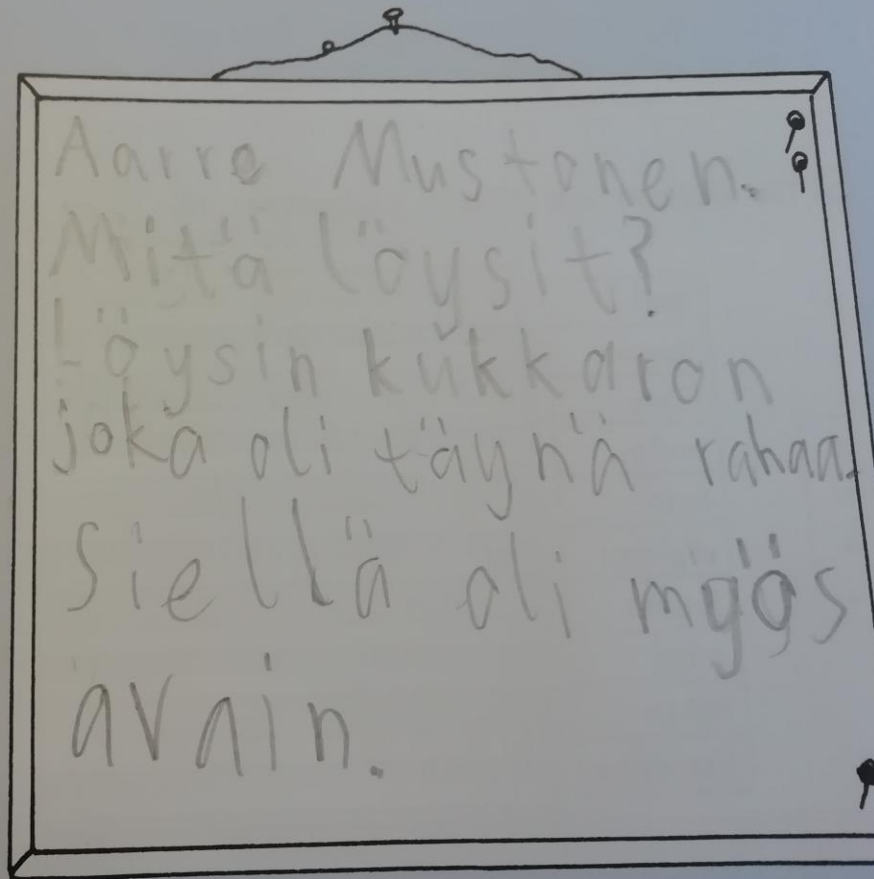 Aarre Mustonen.
Mitä löysit?
Löysin kukkaron
joka oli täynnä rahaa.
Siellä oli myös
avain.